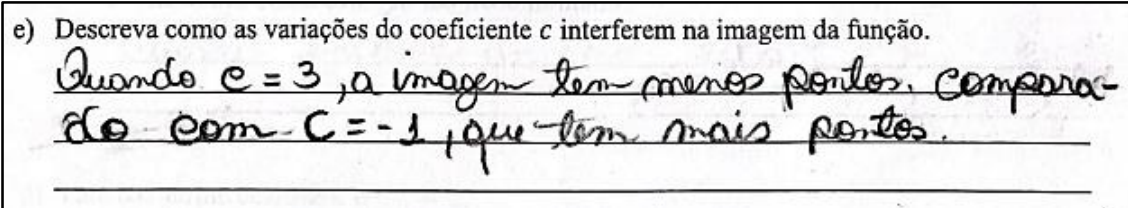 e) Descreva como as variações do coeficiente c interferem na imagem da função.
Quando c = 3, a imagem tem menos pontos. compara-
do com C = -1, que tem mais pontos.